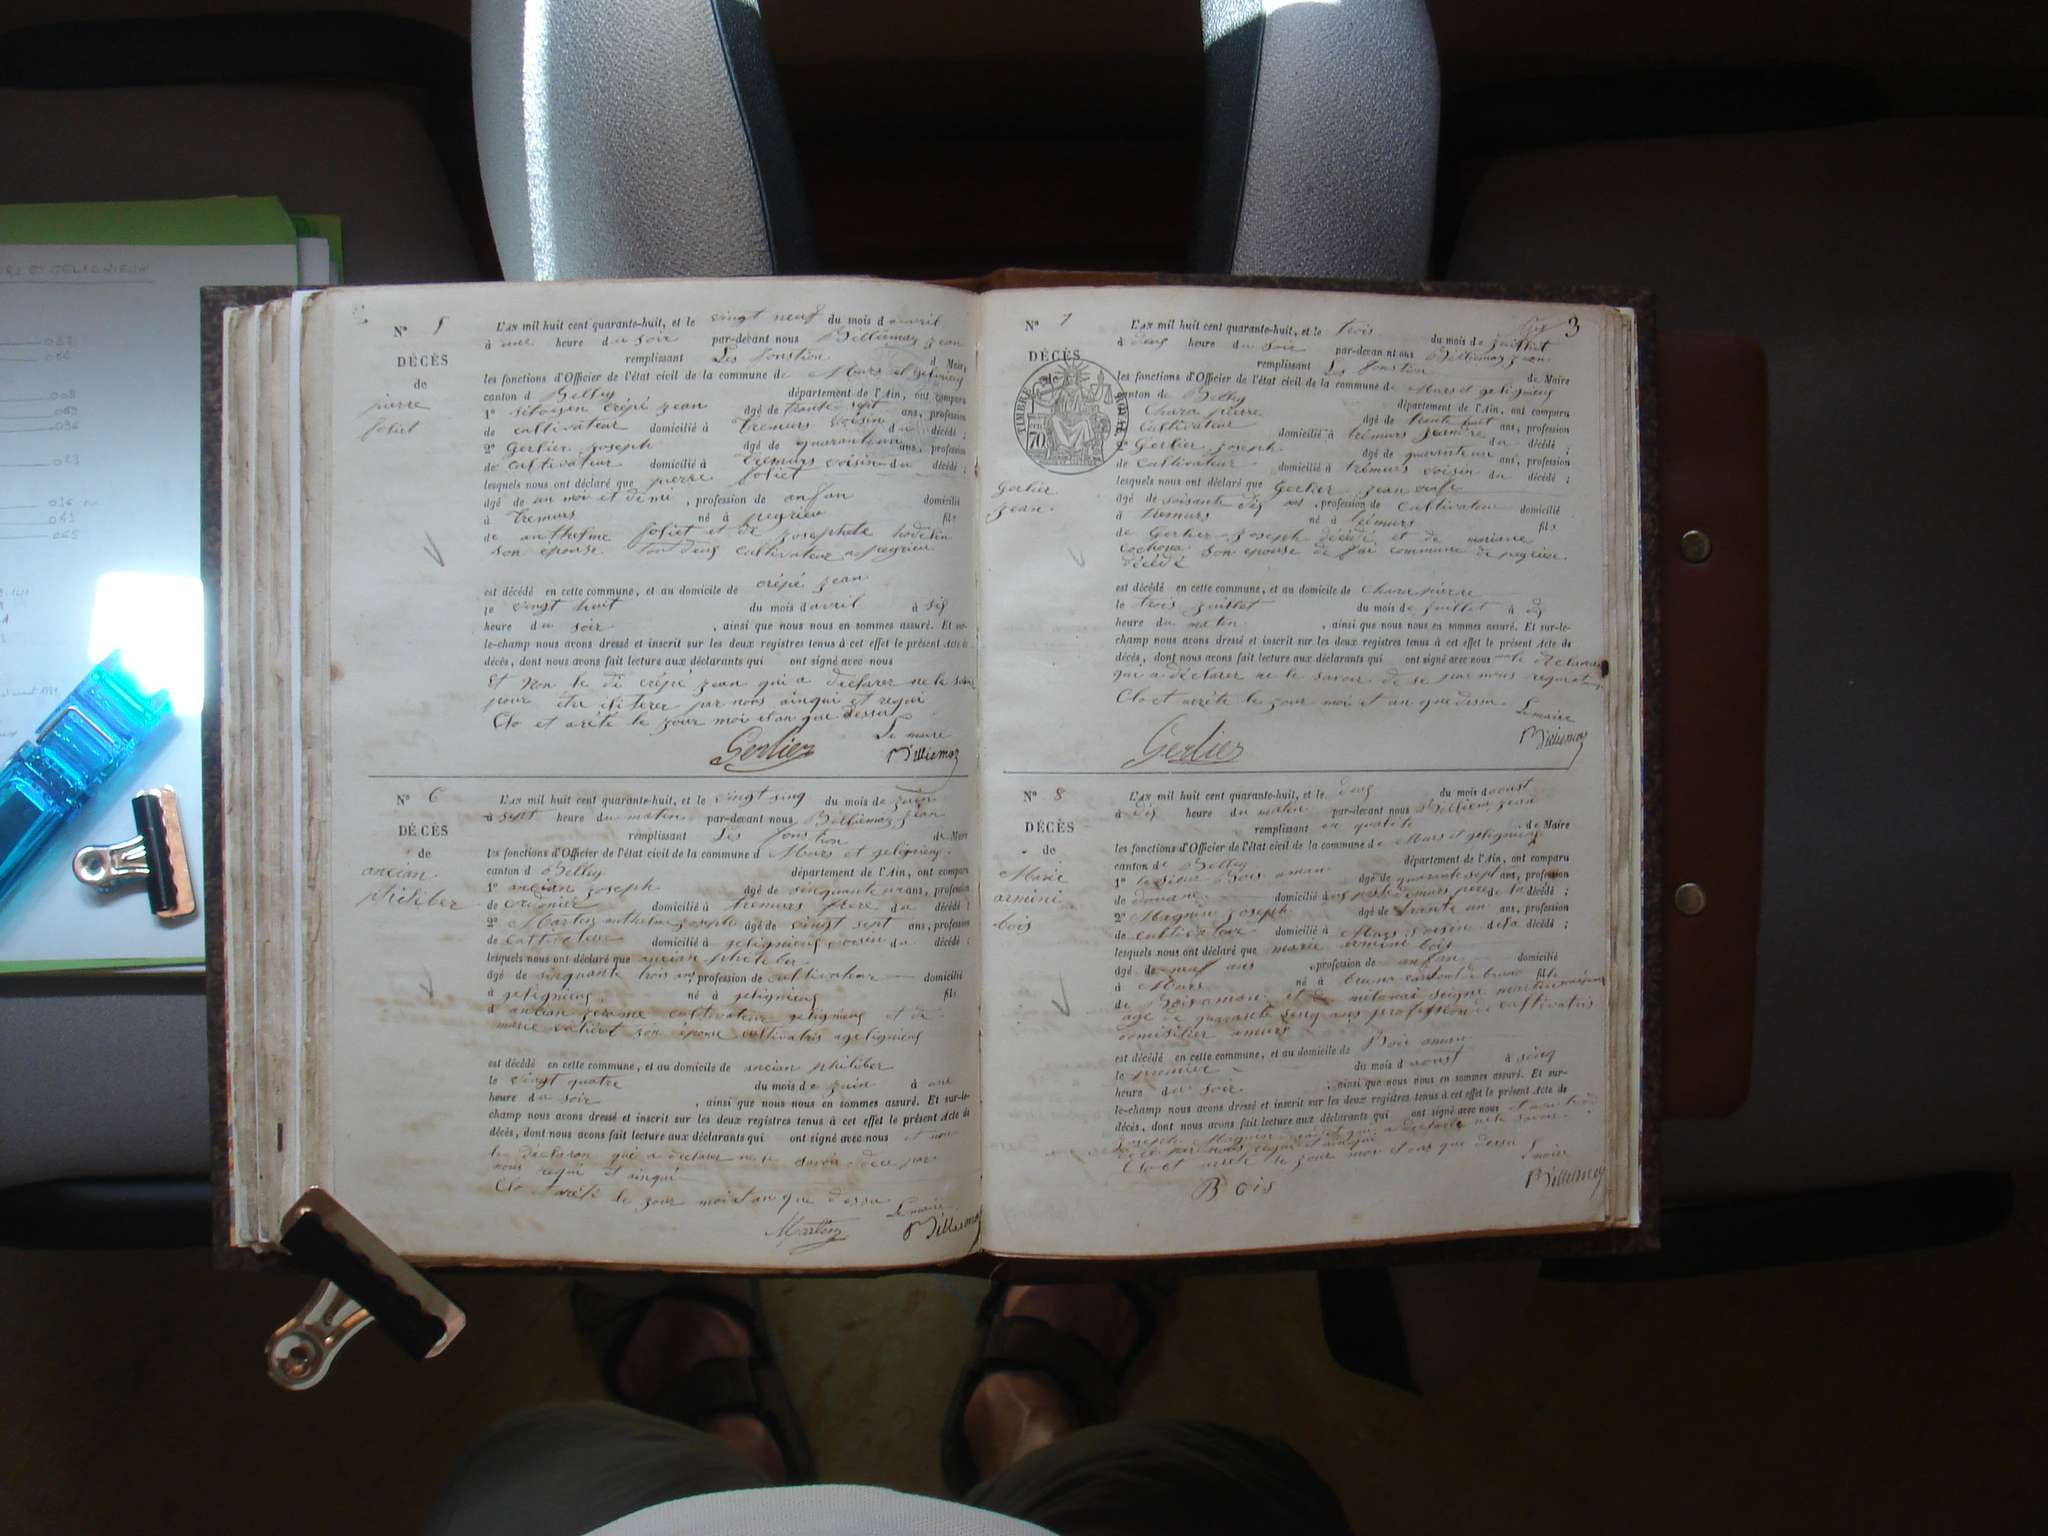 N° 5
DÉCÈS
de
pierre
foliet
L'AN mil huit cent quarante-huit, et le vingt neuf du mois d avril
à une heure du soir par-devant nous Billiemaz jean
remplissant Les fonstion d Maire
les fonctions d'Officier de l'état civil de la commune de Murs et geligneug
canton d Belley département de l'Ain, ont comparu
1° sitoyen crépé jean âgé de trante sept ans, profession
de cultivateur domicilié à tremurs voisin du décédé ;
2° Gerlier joseph âgé de quarante un ans, profession
de cultivateur domicilié à tremurs voisin du décédé ;
lesquels nous ont déclaré que pierre foliet
âgé de un moi et demi, profession de anfan domicilié
à tremurs né à pegrieu fils
de anthelme foliet et de josephete
son épouse tout deug cultivateur a pegrieu
est décédé en cette commune, et au domicile de crépé jean
le vingt huit du mois d avril à sis
heure du soir, ainsi que nous nous en sommes assuré. Et sur-
le-champ nous avons dressé et inscrit sur les deux registres tenus à cet effet le présent Acte de
décès, dont nous avons fait lecture aux déclarants qui ont signé avec nous
Et Non le di crépé jean qui a declarer ne le savoir
pour être par nous ainqui et requi
Clo et arété le jour moi et an que dessu
Le maire
Gerlier Billiemaz
N° 6
DÉCÈS
de
ancian
philiber
L'AN mil huit cent quarante-huit, et le vingt sinq du mois de juin
à sept heure du matin par-devant nous Billiemaz jean
remplissant Les fonstion de Maire
les fonctions d'Officier de l'état civil de la commune d Murs et geligneug
canton d Belley département de l'Ain, ont comparu
1° ancian joseph âgé de sinquante un ans, profession
de cordonier domicilié à tremurs frere du décédé ;
2° Martin anthelme joseph âgé de vingt sept ans, profession
de cultivateur domicilié à geligneug voisin du décédé ;
lesquels nous ont déclaré que ancian philiber
âgé de sinquante trois an, profession de cultivateur domicilié
à geligneug né à geligneug fils
d ancian jerome cultivateur geligneug et de
marie son épouse cultivatris a geligneug
est décédé en cette commune, et au domicile de ancian philiber
le vingt quatre du mois de juin à une
heure du soir, ainsi que nous nous en sommes assuré. Et sur-le-
champ nous avons dressé et inscrit sur les deux registres tenus à cet effet le présent Acte de
décès, dont nous avons fait lecture aux déclarants qui ont signé avec nous et non
le declaron qui a declarer ne le savoir de ce par
nous requi et ainqui
Clo arété le jour moi et an que dessu
Le maire
Martin Billiemaz
3
N° 7
DÉCÈS
de
TIMBRE ROYAL
70
Gerlier
jean
L'AN mil huit cent quarante-huit, et le trois du mois de juillet
à deug heure du soir par-devant nous Billiemaz jean
remplissant Les fonstion de Maire
les fonctions d'Officier de l'état civil de la commune de Murs et geligneug
canton de Belley département de l'Ain, ont comparu
Chara pierre âgé de trante huit ans, profession
Cultivateur domicilié à trémurs jeandre du décédé ;
2° Gerlier joseph âgé de quaranteun ans, profession
de cultivateur domicilié à trémurs voisin du décédé ;
lesquels nous ont déclaré que Gerlier jean
âgé de soisante dis ans, profession de cultivateur domicilié
à tremurs né à trémurs fils
de Gerlier joseph décédé et de mariane
son épouse de commune de pegrieu
décédé
est décédé en cette commune, et au domicile de Chara pierre
le trois juillet du mois de juillet à dis
heure du matin, ainsi que nous nous en sommes assuré. Et sur-le-
champ nous avons dressé et inscrit sur les deux registres tenus à cet effet le présent Acte de
décès, dont nous avons fait lecture aux déclarants qui ont signé avec nous
qui a déclarer ne le savoir de se par nous
Clo et arrété le jour moi et an que dessu
Le maire
Gerlier Billiemaz
N° 8
DÉCÈS
de
Marie
armini
bois
L'AN mil huit cent quarante-huit, et le deug du mois d aoust
à dis heure du matin par-devant nous Billiemaz jean
remplissant en qualité de Maire
les fonctions d'Officier de l'état civil de la commune de Murs et geligneug
canton de Belley département de l'Ain, ont comparu
1° le sieur Bois aman âgé de quarante sept ans, profession
de douane domicilié à murs pere de la décédé ;
2° Magnin joseph âgé de trante an ans, profession
de cultivateur domicilié à Murs voisin de la décédé ;
lesquels nous ont déclaré que marie armini bois
âgé de neuf ans, profession de anfan domicilié
à Murs né à canton de fille
de Bois aman et de
age de quarante sinq ans profession de cultivatris
domisilier a murs
est décédé en cette commune, et au domicile de Bois aman
le premier du mois d aoust à sinq
heure du soir, ainsi que nous nous en sommes assuré. Et sur-
le-champ nous avons dressé et inscrit sur les deux registres tenus à cet effet le présent Acte de
décès, dont nous avons fait lecture aux déclarants qui ont signé avec nous et non
joseph Magnin qui a declarer ne le savoir
de ce par nous requi et ainqui
Clo et arrété le jour moi et ans que dessu
Le maire
Bois Billiemaz